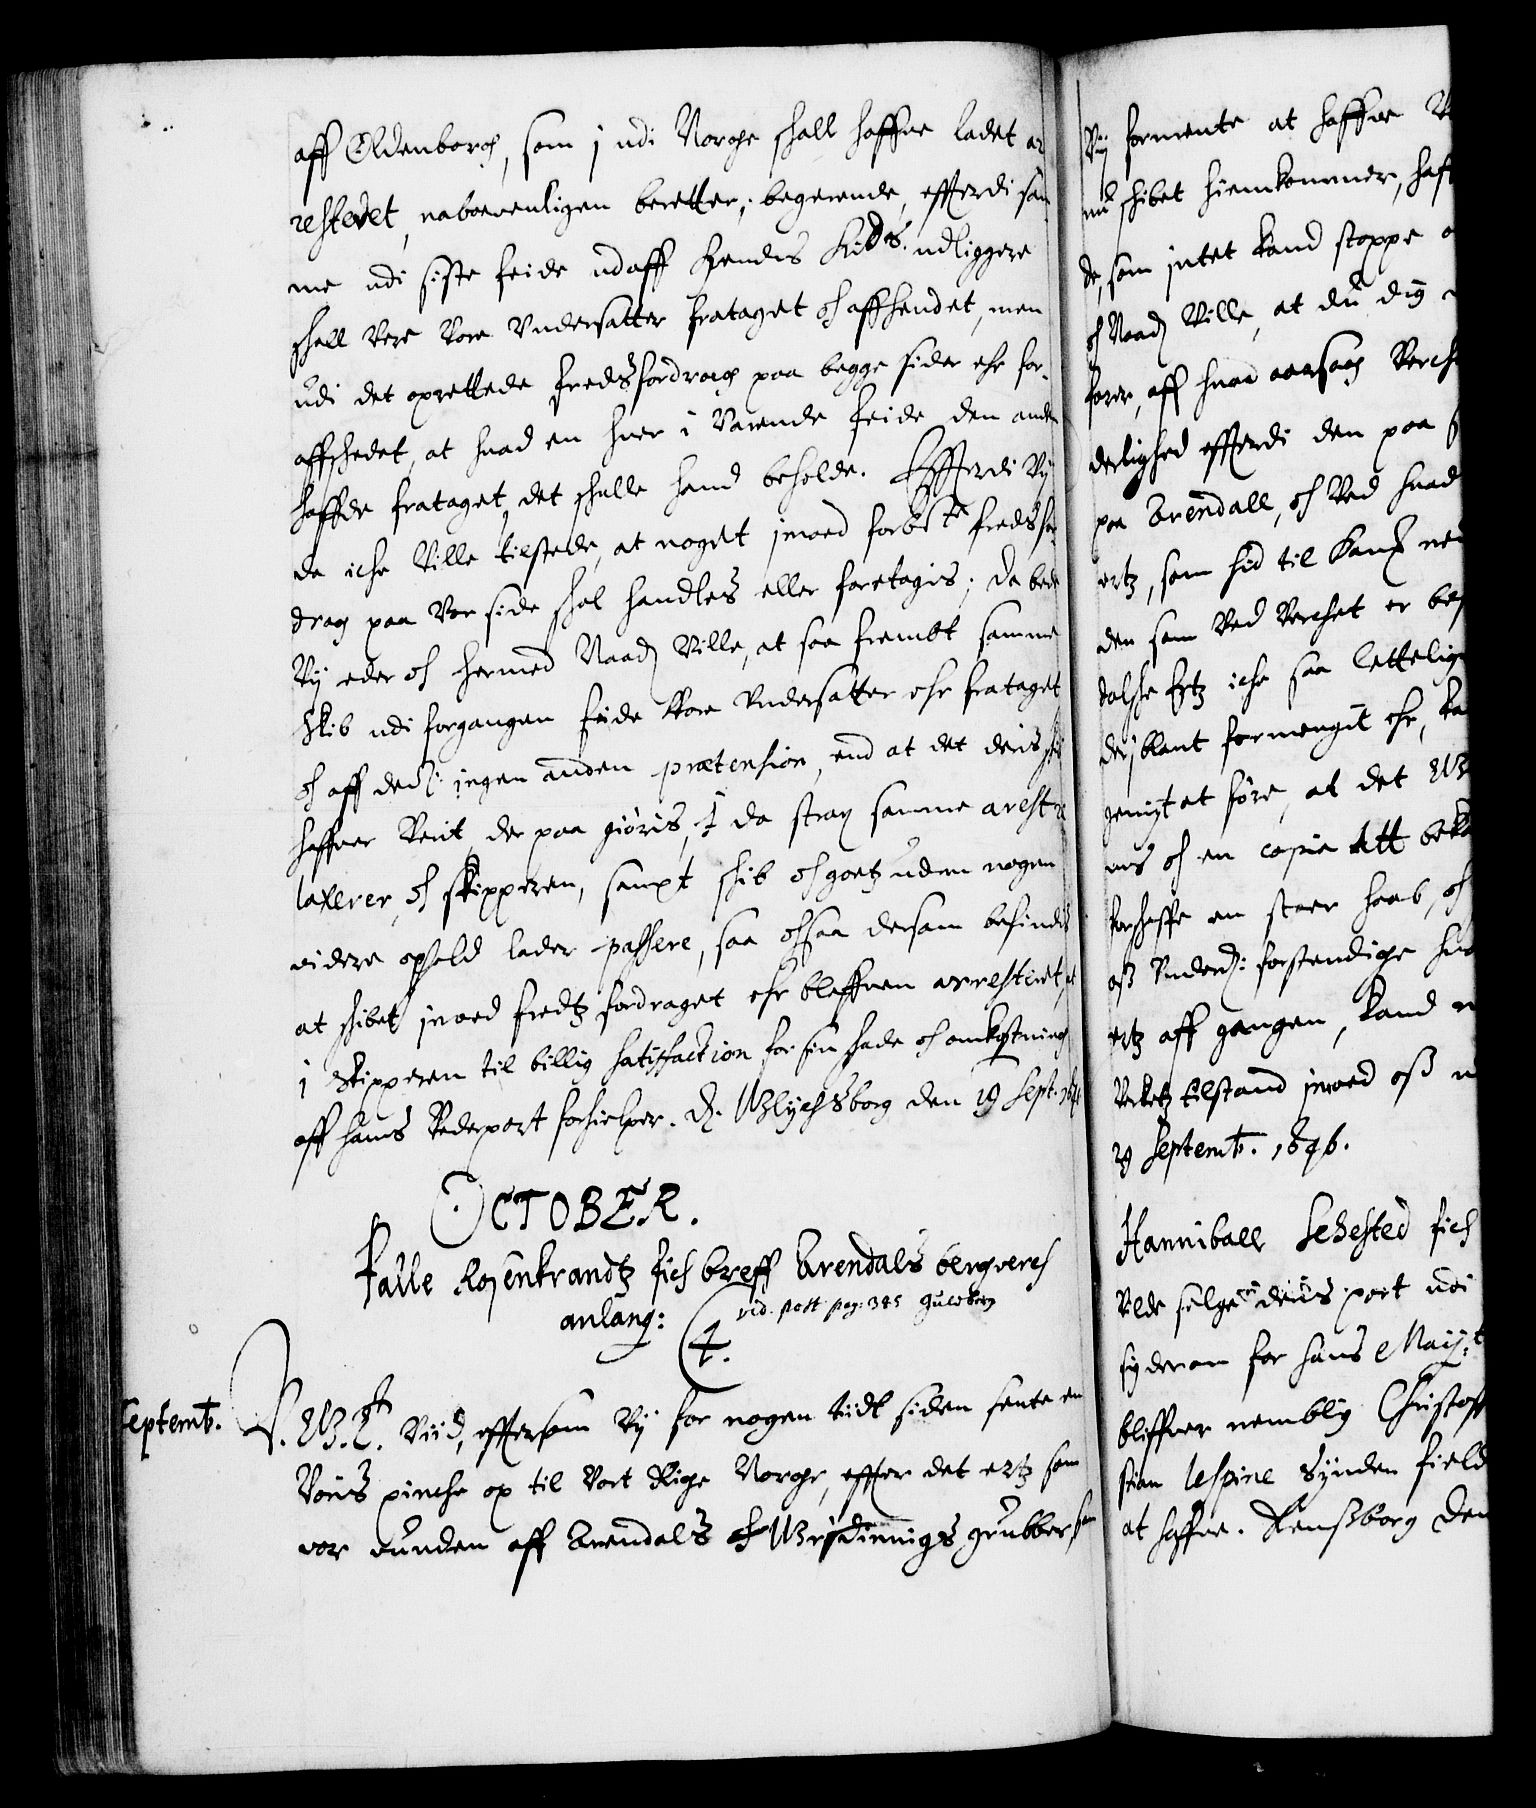 aff Oldenborg, som j udi Norge skall haffue ladet ar
resteret, naboeuenligen beretter; begerende, effterdi sam
me udi siste feide udaff Hendis Ki: Uds: udliggere
skall Vere Vore Vndersatter frataget och affhendet, men
udi det oprettede fredsfordrag paa begge sider ehr for-
affskedet, at huad en huer i Varende feide den anden
haffde frataget, det skulle hand beholde. Effterdi Vij
da iche Ville tilstede, at noget jmod forbete fredsfor
drag paa Vor side skal handles eller foretagis; Da bede
Vij eder och hermed Naadl Ville, at saa frembt samme
Skib udi forgangen feide Vore Vndersatter ehr frataget
och aff dem ingen anden prætension, end at det deris
haffuer Verit, der paa giøris, I da strax samme arest re
laxerer, och skipperen, sampt skib och goetz uden nogen
videre ophold lader passere, saa ochsaa dersom befindis
at skibet jmod fredtz fordraget ehr bleffuen arresteret, at
j Skipperen til billig satisfaction for sin skade och omkostning
aff hans Vederpart forhielper. D. Glychsborg den 19 Sept.
OCTOBER.
Palle Rosenkrandtz fich breff Arendals bergverch
anlang: vid. post pag: 345 Guldberg
4.
Septemt.
V. G. T. Viid, effter som Vij for nogen tiidt siden sente en
Voris pinche op til Vort Rige Norge, effter det ertz som
vor vunden aff Arendals och grubber som
Vij formente at haffue
skibet hiemkommer, haff
de, som jntet kand stoppe
och Naadl Ville, at du dig
farer, aff huad aarsag Verch
derlighed effterdi den paa
paa Arendall, och Ved huad
ertz, som hid til kand
den som Ved Verchet er
dalske Ertz iche saa letteligen
dej blant formengit ehr,
gemyt at føre, at det
och en copie att
forskaffe en stoer hoeb, och
oss Vnderd: forstendige
ertz aff gangen, kand
Verketz tilstand jmod oss
29 Septemt. 1646.
Hanniball Sehested fich
Vilde selge deris part udi
syderom for hans Mayt
bliffuer nemblig Christoff
stian lespine synden field
at haffue. Rensborg den